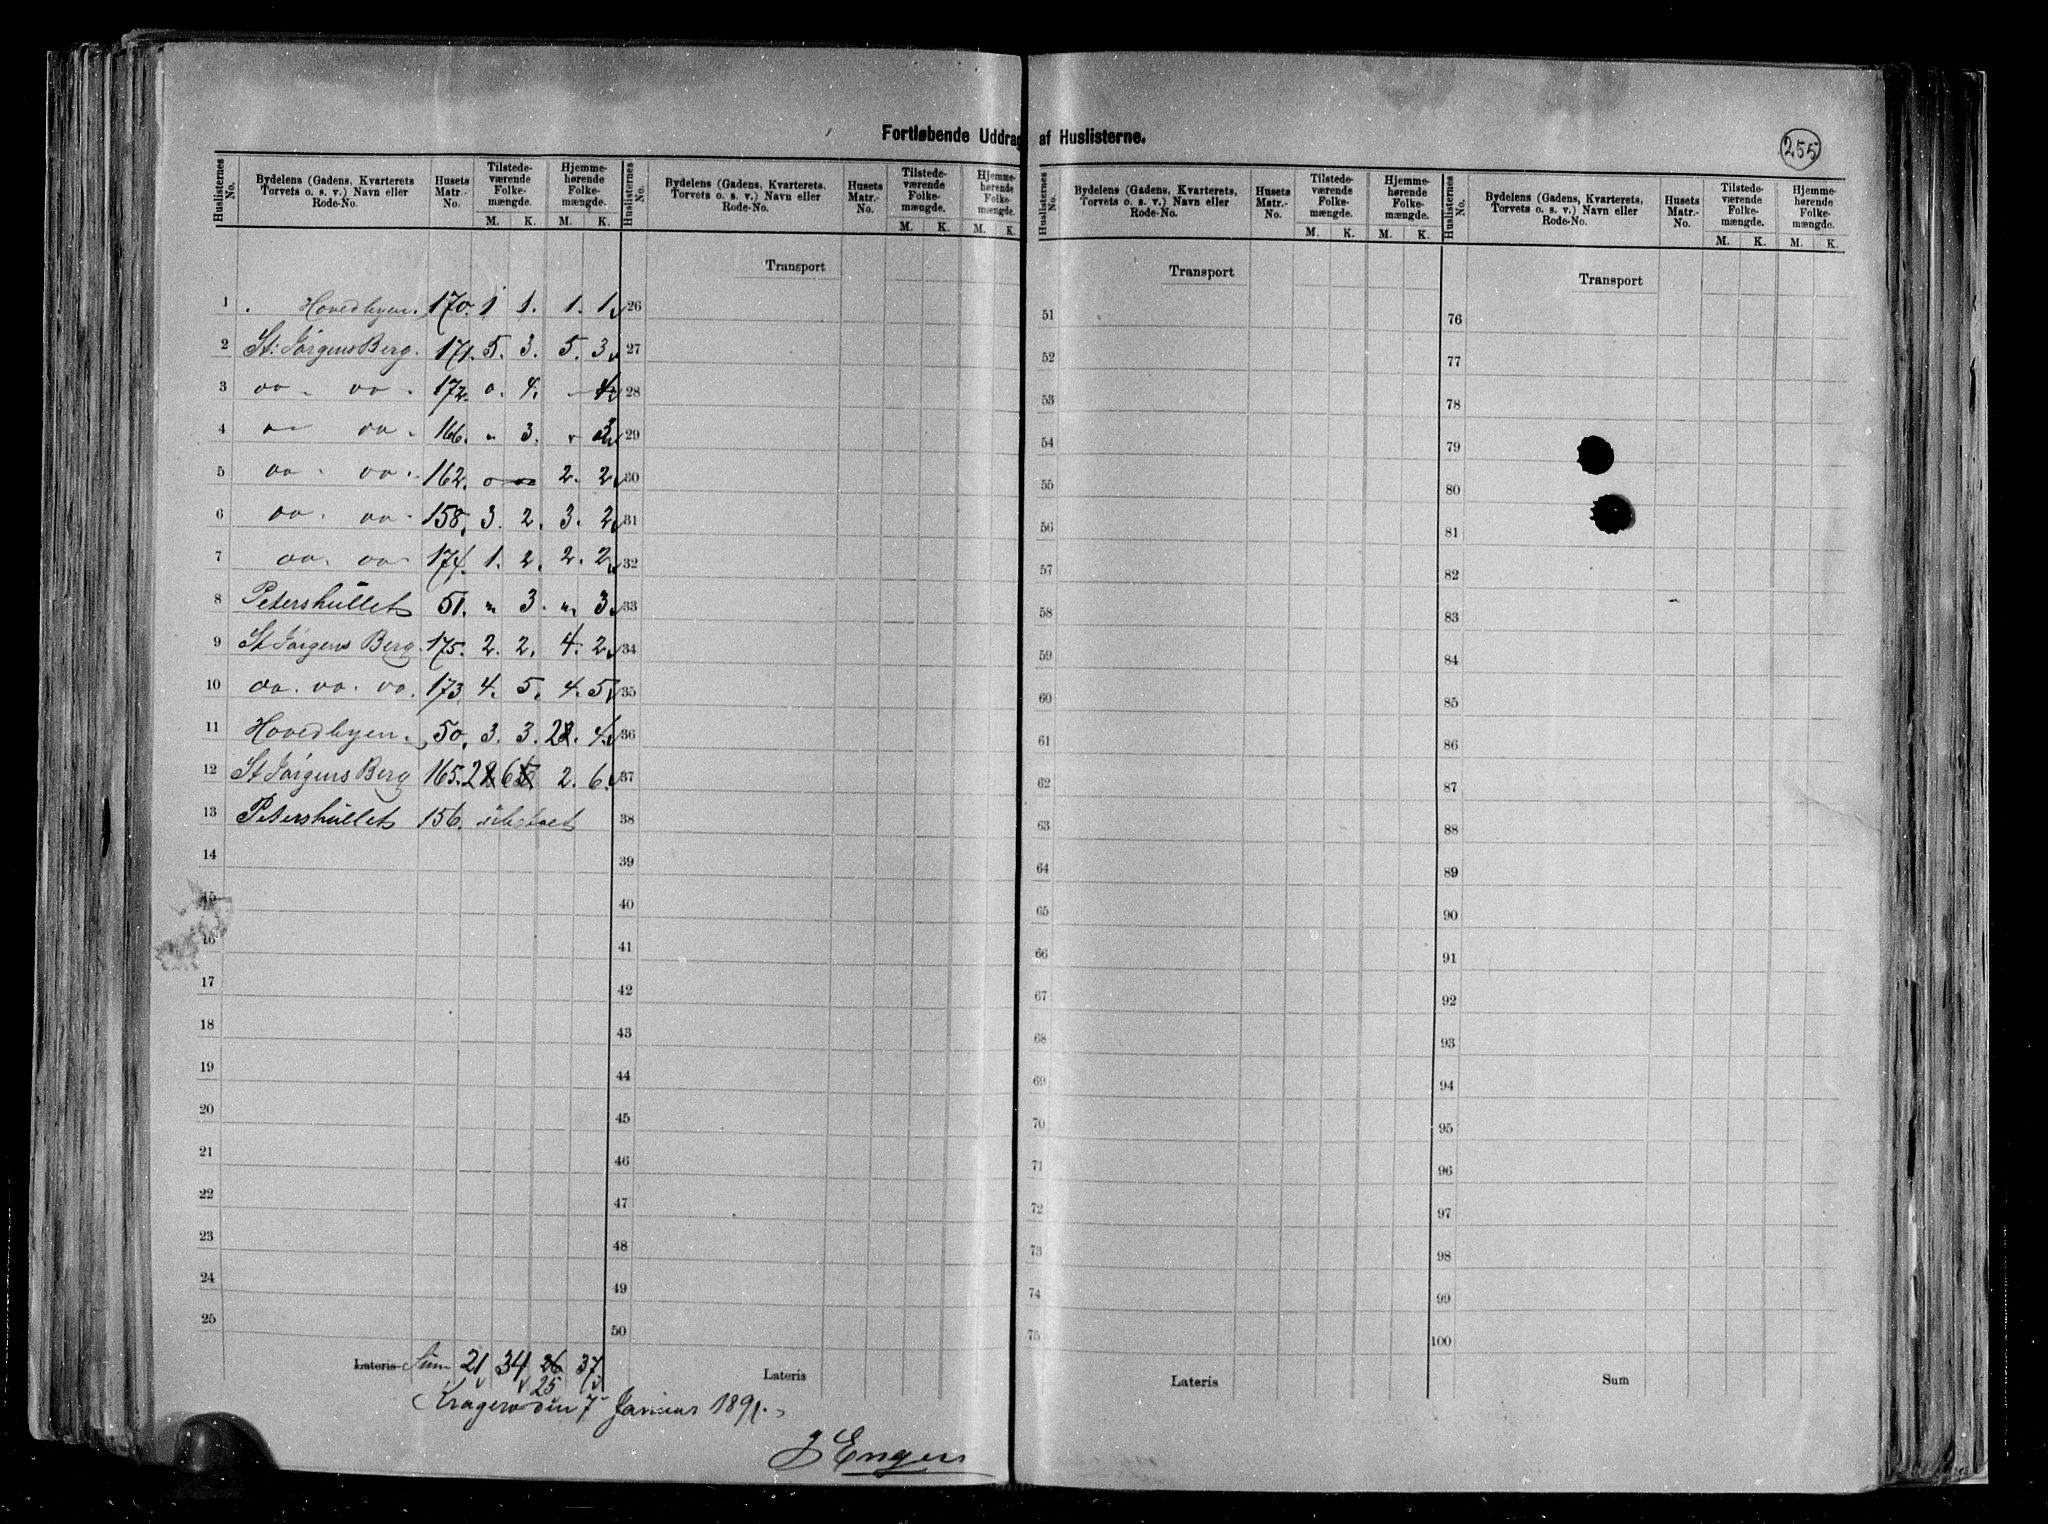 Fortløbende Uddrag af Huslisterne.
255
Huslisternes No. Bydelens (Gadens, Kvarterets Torvets o. s. v.) Navn eller Rode-No. Husets Matr.-No. Tilstede-værende Folke-mængde. M. K. Hjemme-hørende Folke-mængde. M. K.
Huslisternes No. Bydelens (Gadens, Kvarterets, Torvets o. s. v.) Navn eller Rode-No. Husets Matr.-No. Tilstede-værende Folke-mængde. M. K. Hjemme-hørende Folke-mængde. M. K.
Huslisternes No. Bydelens (Gadens, Kvarterets, Torvets o. s. v.) Navn eller Rode-No. Husets Matr.-No. Tilstede-værende Folke-mængde. M. K. Hjemme-hørende Folke-mængde. M. K.
Huslisternes No. Bydelens (Gadens, Kvarterets, Torvets o. s. v.) Navn eller Rode-No. Husets Matr.-No. Tilstede-værende Folke-mængde. M. K. Hjemme-hørende Folke-mængde. M. K.
1 Hovedbyen. 170. 1 1. 1. 1
2 St: Jörgens Berg. 171. 5. 3. 5. 3
3 oo - oo - 172. o. 4. - 4
4 o- oo - 166. " 3. " 3
5 oo - oo - 162. o oo 2. 2
6 oo - oo - 158. 3. 2. 3. 2
7 oo - oo 174. 1. 2. 2. 2
8 Petershullet 51. " 3. " 3
9 St Jörgens Berg. 175. 2. 2. 4. 2
10 oo. oo. oo. 173. 4. 5. 4. 5
11 Hovedbyen. 50. 3. 3. 2 4
12 St Jörgens Berg 165. 2 6 2. 6.
13 Petershullet 156. ubeboet
14
15
16
17
18
19
20
21
22
23
24
25
Lateris Sum 21 34 26 37
25
Kragerø den 7 Januar 1891.
J Engers
Transport
26
27
28
29
30
31
32
33
34
35
36
37
38
39
40
41
42
43
44
45
46
47
48
49
50
Lateris
Transport
51
52
53
54
55
56
57
58
59
60
61
62
63
64
65
66
67
68
69
70
71
72
73
74
75
Lateris
Transport
76
77
78
79
80
81
82
83
84
85
86
87
88
89
90
91
92
93
94
95
96
97
98
99
100
Sum